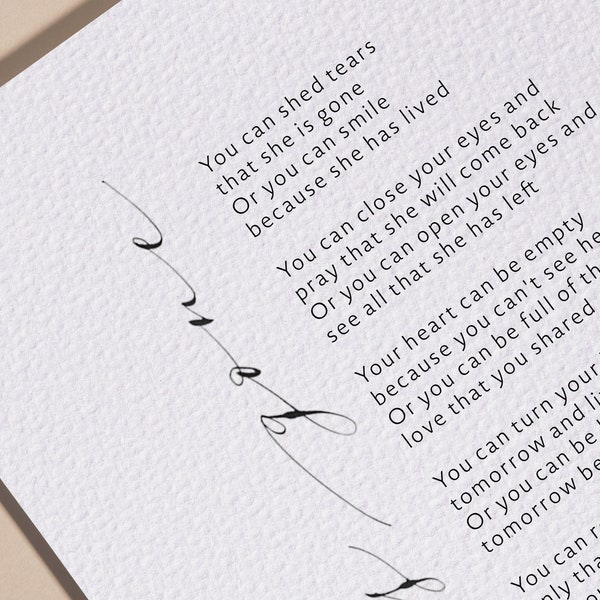 You can shed tears
that she is gone
Or you can smile
because she has lived
You can close your eyes and
pray that she will come back
Or you can open your eyes and
see all that she has left
Your heart can be empty
because you can't see
Or you can be full of
love that you shared
You can turn your
tomorrow and
Or you can be
tomorrow
You can